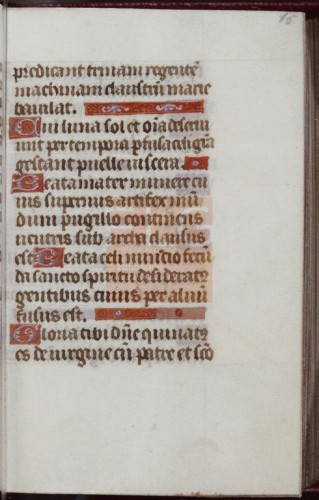 15
predicant trinam regentē
machinam claustrū marie
baiulat.
Cui luna sol et oīa deserui
unt per tempora p̄fusa celi grā
gestant puelle uiscera.
Beata mater munere cu
ius supernus artifex mū
dum pugillo continens
uentris sub archa clausus
est Beata celi nuncio fecū
da sancto spiritu desideratꝫ
gentibus cuius per aluū
fusus est.
Gloria tibi dn̄e qui natꝫ
es de uirgine cū patre et sc̄o